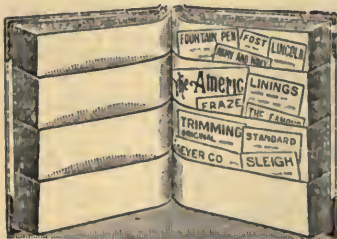 FOUNTAIN PEN
FOST
LINCOLN
ARMY AND NAVY
The Americ
LININGS
FRAZE
THE FAMOUS
TRIMMING
ORIGINAL
STANDARD
EYER CO
SLEIGH